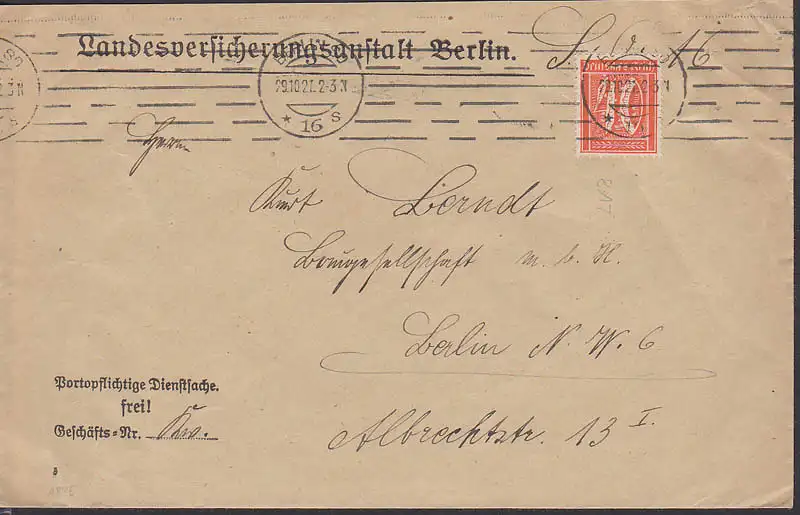 Landesversicherungsanstalt Berlin.
BERLIN
29.10.21. 2-3 N
* 16 s
Deutsches Reich
40
Herrn
Kurt Berndt
Baugesellschaft m. b. H.
Berlin N. W. 6
Albrechtstr. 13 I.
Portopflichtige Dienstsache.
frei!
Geschäfts-Nr. Kw.